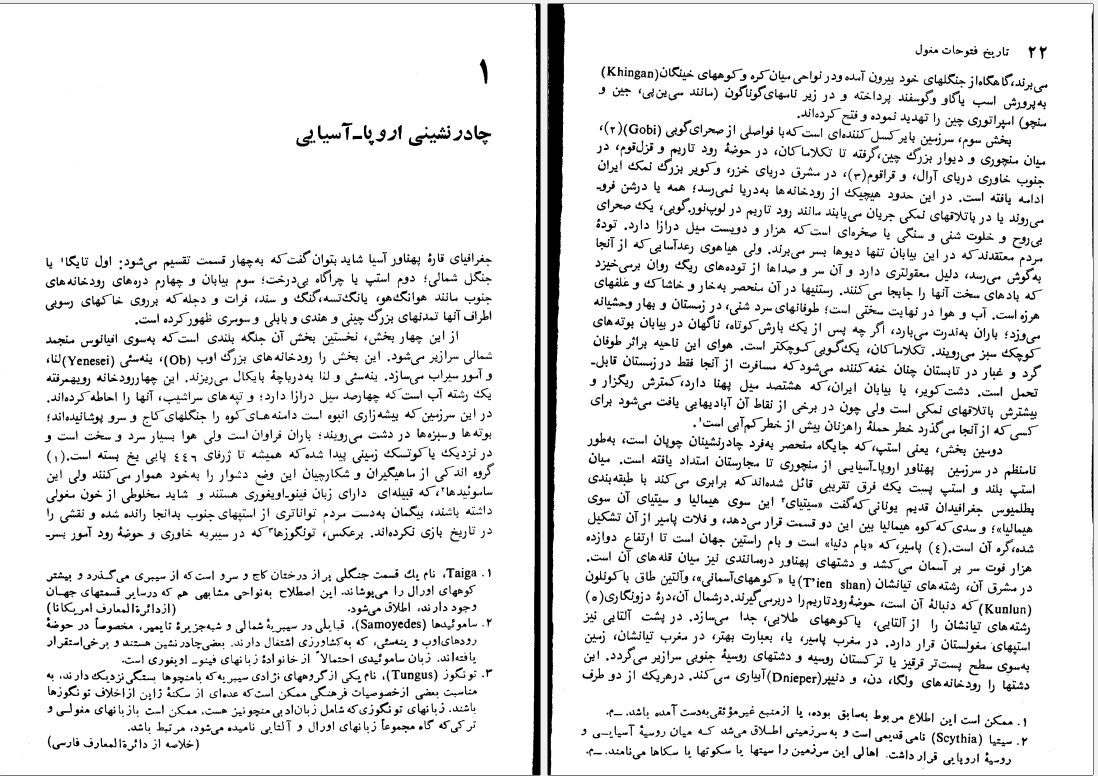 ۱
چادرنشینی اروپا-آسیایی
جغرافیای قارهٔ پهناور آسیا شاید بتوان گفت که به‌چهار قسمت تقسیم می‌شود: اول تایگا۱ یا
جنگل شمالی؛ دوم استپ یا چراگاه بی‌درخت؛ سوم بیابان و چهارم دره‌های رودخانه‌های
جنوب مانند هوانگ‌هو، یانگ‌تسه، گنگ و سند، فرات و دجله که برروی خاکهای رسوبی
اطراف آنها تمدنهای بزرگ چینی و هندی و بابلی و سومری ظهور کرده است.
از این چهار بخش، نخستین بخش آن جلگه بلندی است که به‌سوی اقیانوس منجمد
شمالی سرازیر می‌شود. این بخش را رودخانه‌های بزرگ اوب (Ob)، ینه‌سئی (Yenesei) لنا،
و آمور سیراب می‌سازد. ینه‌سئی و لنا به‌دریاچهٔ بایکال می‌ریزند. این چهاررودخانه رویهمرفته
یک رشته آب است که چهارصد میل درازا دارد؛ و تپه‌های سراشیب، آنها را احاطه کرده‌اند.
در این سرزمین که بیشه‌زاری انبوه است دامنه‌های کوه را جنگلهای کاج و سرو پوشانیده‌اند؛
بوته‌ها و سبزه‌ها در دشت می‌رویند؛ باران فراوان است ولی هوا بسیار سرد و سخت است و
در نزدیک یاکوتسک زمینی پیدا شده که همیشه تا ژرفای ۴۴۶ پایی یخ بسته است.(۱)
گروه اندکی از ماهیگیران و شکارچیان این وضع دشوار را به‌خود هموار می‌کنند ولی این
ساموئیدها۲، که قبیله‌ای دارای زبان فینو-ایغوری هستند و شاید مخلوطی از خون مغولی
داشته باشند، بیگمان به‌دست مردم تواناتری از استپهای جنوب بدانجا رانده شده و نقشی را
در تاریخ بازی نکرده‌اند. برعکس، تونگوزها۳ که در سیبریه خاوری و حوضهٔ رود آمور بسر-
۱. Taiga، نام یك قسمت جنگلی پر از درختان کاج و سرو است که از سیبری می‌گذرد و بیشتر
کوههای اورال را می‌پوشاند. این اصطلاح به‌نواحی مشابهی هم که درسایر قسمتهای جهان
وجود دارند، اطلاق می‌شود. (ازدائرة‌المعارف امریکانا)
۲. ساموئیدها (Samoyedes)، قبایلی در سیبریهٔ شمالی و شبه‌جزیرهٔ تایمیر، مخصوصاً در حوضهٔ
رودهای‌اوب و ینه‌سئی، که به‌کشاورزی اشتغال دارند. بعضی‌چادرنشین هستند و برخی‌استقرار
یافته‌اند. زبان ساموئیدی احتمالاً از خانوادهٔ زبانهای فینو- اویغوری است.
۳. تونگوز (Tungus)، نام یکی ازگروههای نژادی سیبریه که بامنچوها بستگی نزدیك دارند، به
مناسبت بعضی ازخصوصیات فرهنگی ممکن است که عده‌ای از سکنهٔ ژاپن ازاخلاف تونگوزها
باشند. زبانهای تونگوزی که شامل زبان‌ادبی منچونیز هست، ممکن است بازبانهای مغولی و
ترکی که گاه مجموعاً زبانهای اورال و آلتایی نامیده می‌شود، مرتبط باشد.
(خلاصه از دائرة‌المعارف فارسی)
۲۲ تاریخ فتوحات مغول
می‌برند، گاهگاه از جنگلهای خود بیرون آمده ودر نواحی میان کره و کوههای خینگان(Khingan)
به‌پرورش اسب یاگاو وگوسفند پرداخته و در زیر نامهای گوناگون (مانند سی‌ین‌پی، جین و
منچو) امپراتوری چین را تهدید نموده و فتح کرده‌اند.
بخش سوم، سرزمین بایر کسل کننده‌ای است که با فواصلی از صحرای‌گوبی (Gobi)(۲)،
میان منچوری و دیوار بزرگ چین، گرفته تا تکلاماکان، در حوضهٔ رود تاریم و قزل‌قوم، در
جنوب خاوری دریای آرال، و قراقوم(۳)، در مشرق دریای خزر، و کویر بزرگ نمک ایران
ادامه یافته است. در این حدود هیچیک از رودخانه‌ها به‌دریا نمی‌رسد؛ همه یا درشن فرو-
می‌روند یا در باتلاقهای نمکی جریان می‌یابند مانند رود تاریم در لوپ‌نور.گوبی، یک صحرای
بی‌روح و خلوت شنی و سنگی یا صخره‌ای است که هزار و دویست میل درازا دارد. تودهٔ
مردم معتقدند که در این بیابان تنها دیوها بسر می‌برند. ولی هیاهوی رعدآسایی که از آنجا
به‌گوش می‌رسد، دلیل معقولتری دارد و آن سر و صداها از توده‌های ریگ روان برمی‌خیزد
که بادهای سخت آنها را جابجا می‌کنند. رستنیها در آن منحصر به‌خار و خاشاک و علفهای
هرزه است. آب و هوا در نهایت سختی است؛ طوفانهای سرد شنی، در زمستان و بهار وحشیانه
می‌وزد؛ باران به‌ندرت می‌بارد، اگر چه پس از یک بارش کوتاه، ناگهان در بیابان بوته‌های
کوچک سبز می‌رویند. تکلاماکان، یک‌گوبی کوچکتر است. هوای این ناحیه براثر طوفان
گرد و غبار در تابستان چنان خفه کننده می‌شود که مسافرت از آنجا فقط در زمستان قابل-
تحمل است. دشت کویر، یا بیابان ایران، که هشتصد میل پهنا دارد، کمترش ریگزار و
بیشترش باتلاقهای نمکی است ولی چون در برخی از نقاط آن آبادیهایی یافت می‌شود برای
کسی که از آنجا می‌گذرد خطر حملهٔ راهزنان بیش از خطر کم‌آبی است۱.
دومین بخش، یعنی استپ، که جایگاه منحصر به‌فرد چادرنشینان چوپان است، به‌طور
نامنظم در سرزمین پهناور اروپا-آسیایی از منچوری تا مجارستان امتداد یافته است. میان
استپ بلند و استپ پست یک فرق تقریبی قائل شده‌اند که برابری می‌کند با طبقه‌بندی
بطلمیوس جغرافیدان قدیم یونانی که گفت «سیتیای۲ این سوی هیمالیا و سیتیای آن سوی
هیمالیا»؛ و سدی که کوه هیمالیا بین این دو قسمت قرار می‌دهد، و فلات پامیر از آن تشکیل
شده، گره آن است.(۴) پامیر، که «بام دنیا» است و بام راستین جهان است تا ارتفاع دوازده
هزار فوت سر بر آسمان می‌کشد و دشتهای پهناور دره‌مانندی نیز میان قله‌های آن است.
در مشرق آن، رشته‌های تیانشان (T'ien shan) یا «کوههای‌آسمانی»، وآلتین طاق با کوئلون
(Kunlun) که دنبالهٔ آن است، حوضهٔ رودتاریم را دربرمی‌گیرند. درشمال آن، درهٔ دزونگاری(۵)
رشته‌های تیانشان را از آلتایی، یا کوههای طلایی، جدا می‌سازد. در پشت آلتایی نیز
استپهای مغولستان قرار دارد. در مغرب پامیر، یا، بعبارت بهتر، در مغرب تیانشان، زمین
به‌سوی سطح پست‌تر قرقیز یا ترکستان روسیه و دشتهای روسیهٔ جنوبی سرازیر می‌گردد. این
دشتها را رودخانه‌های ولگا، دن، و دنیپر(Dnieper) آبیاری می‌کند. درهریک از دو طرف
۱. ممکن است این اطلاع مربوط به‌سابق بوده، یا ازمنبع غیرموثقی به‌دست آمده باشد. ــم.
۲. سیتیا (Scythia) نامی‌قدیمی است و به‌سرزمینی اطلاق می‌شد کـه میان روسیهٔ آسیایـی و
روسیهٔ اروپایی قرار داشت. اهالی این سرزمین را سیتها یا سکوتها یا سکاها می‌نامند. ــم.